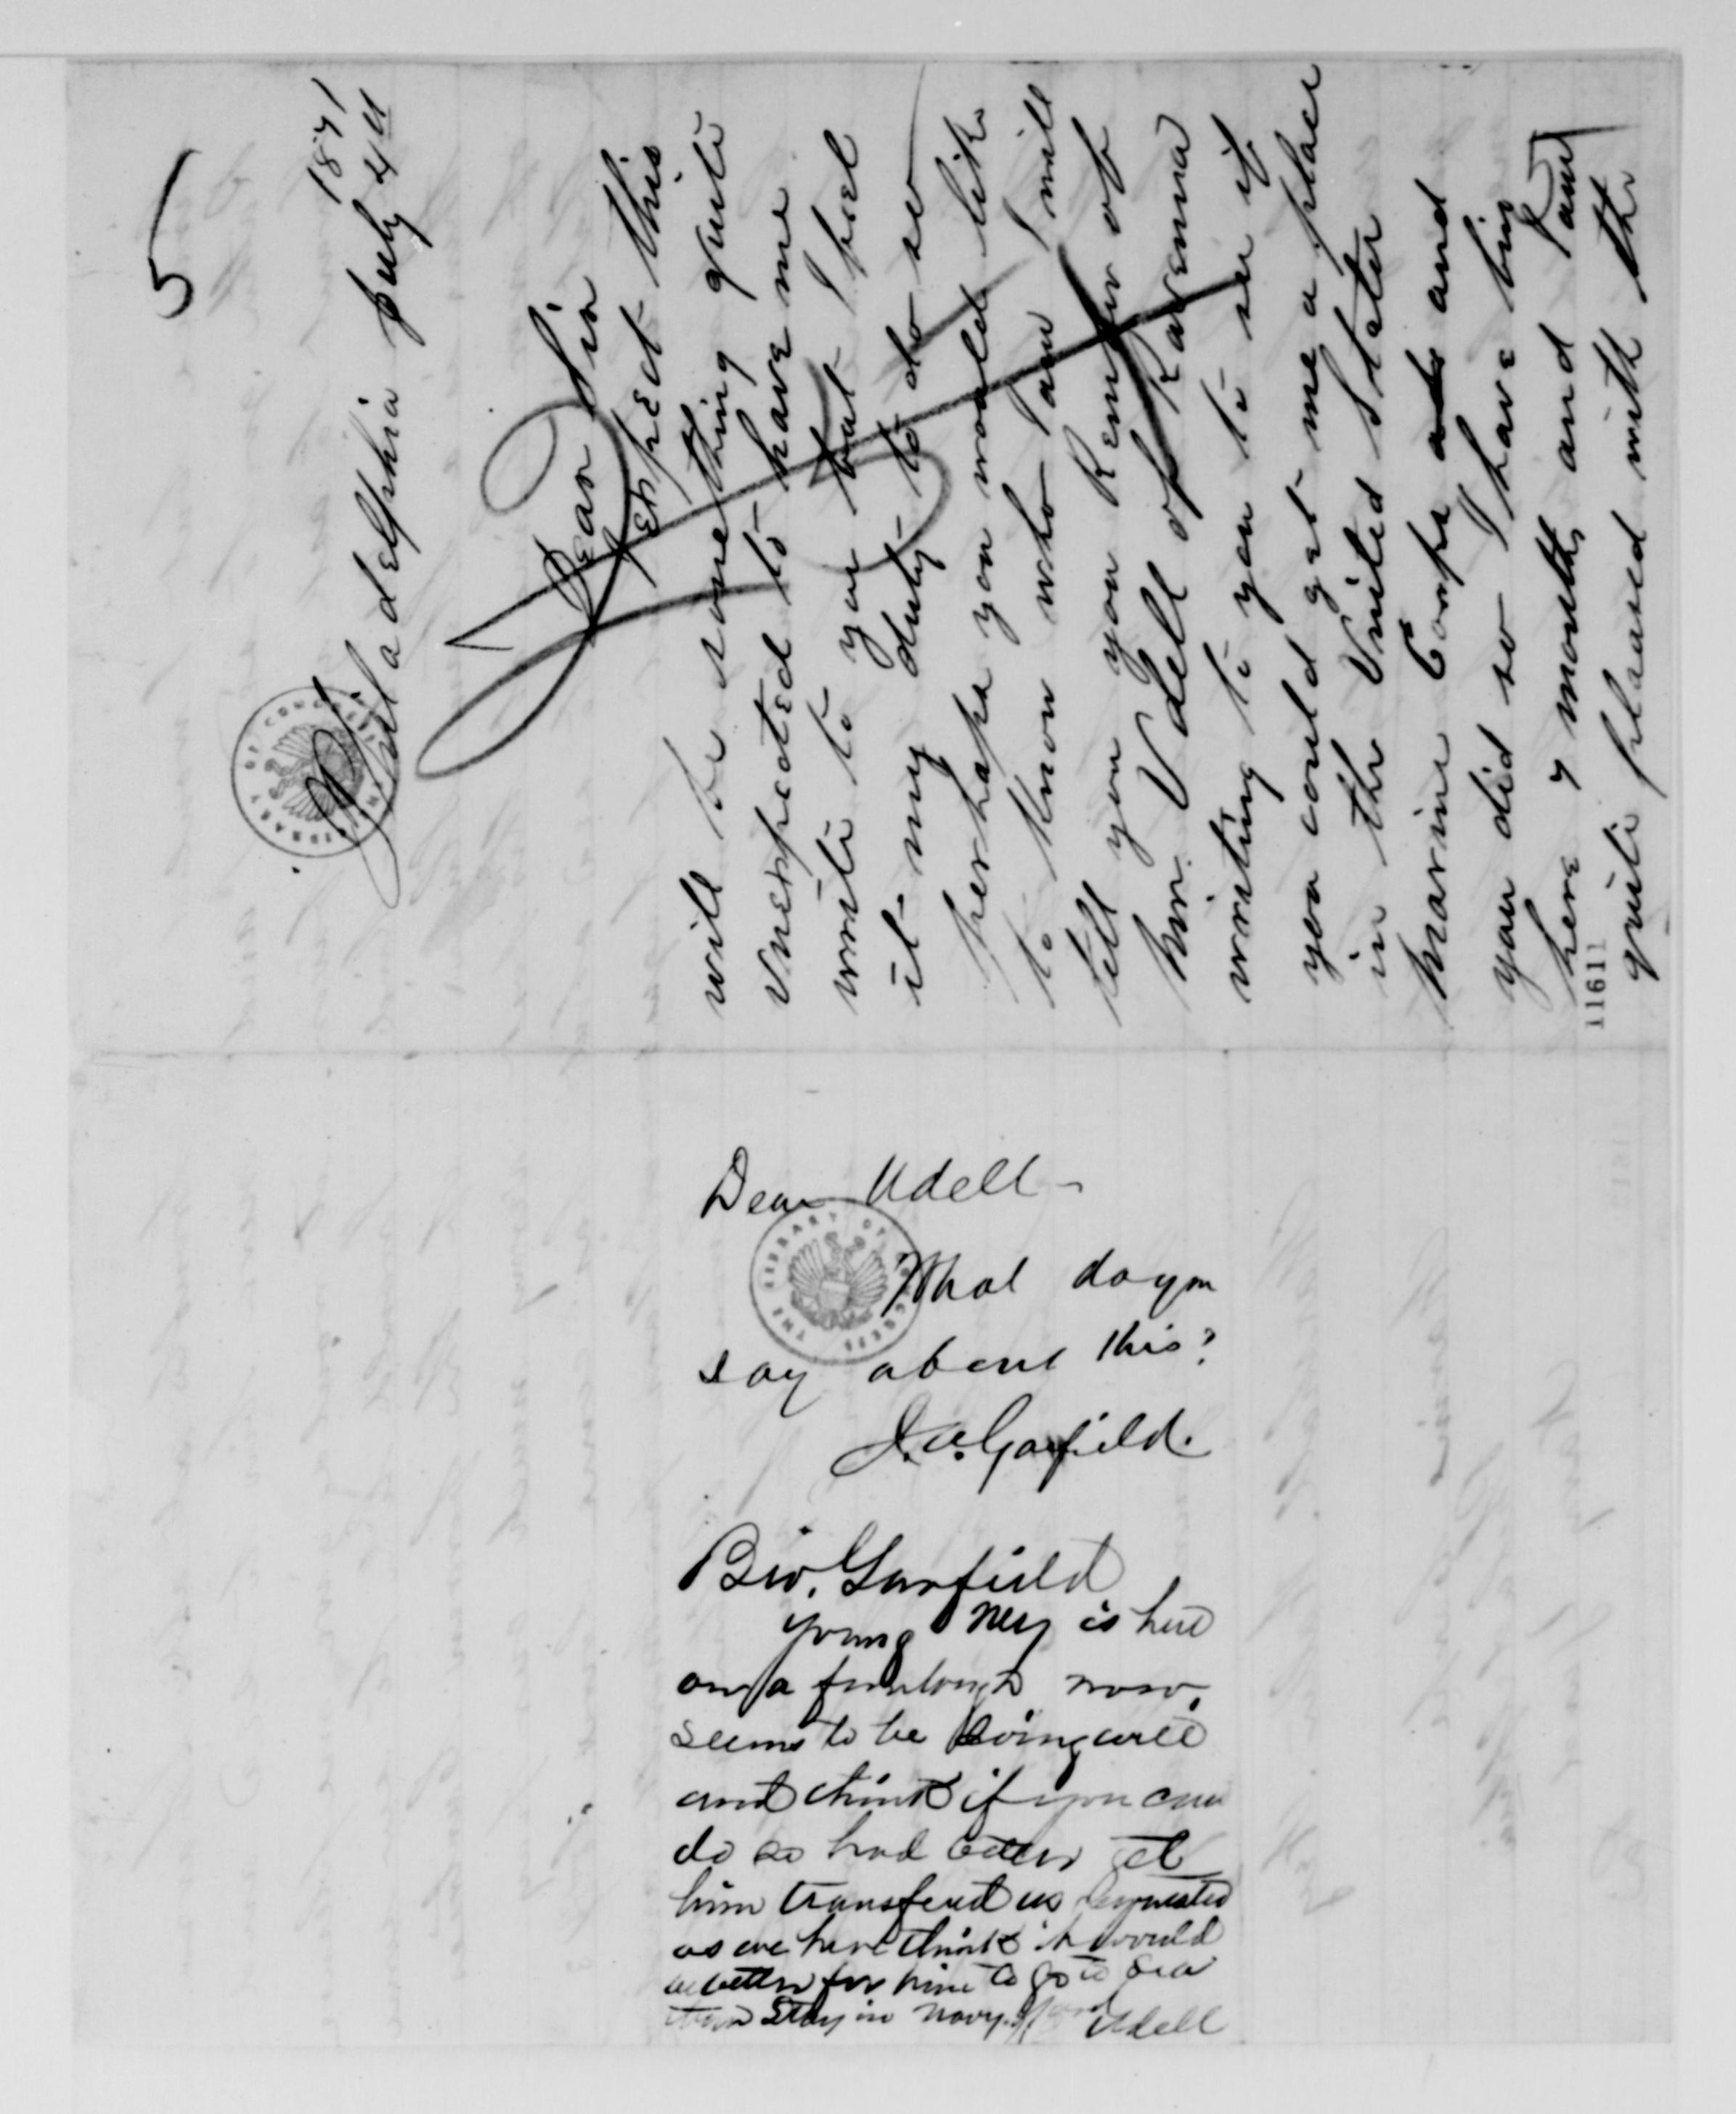 5
1871
Philadelphia July 4th
Dear Sir
I expect this
will be something quite
unexpected to have me
write to you but I feel
it my duty to do so
perhaps you would like
to know who I am I will
tell you you Remember of
Mr. Udell of Ravenna
writing to you to see if
you could get me a place
in the United States
Marine Corps and
you did so I have bin
here 7 months and I am
quite pleased with the
11611
Dear Udell -
What do you
say about this?
J. A. Garfield.
THE LIBRARY OF CONGRESS
Bro. Garfield
Young Ney is here
on a furlough now.
seems to be doing well
and think if you can
do so had better let
him transferd as requested
as we here think it would
be better for him to go to Sea
than Stay in Navy Yard
Udell